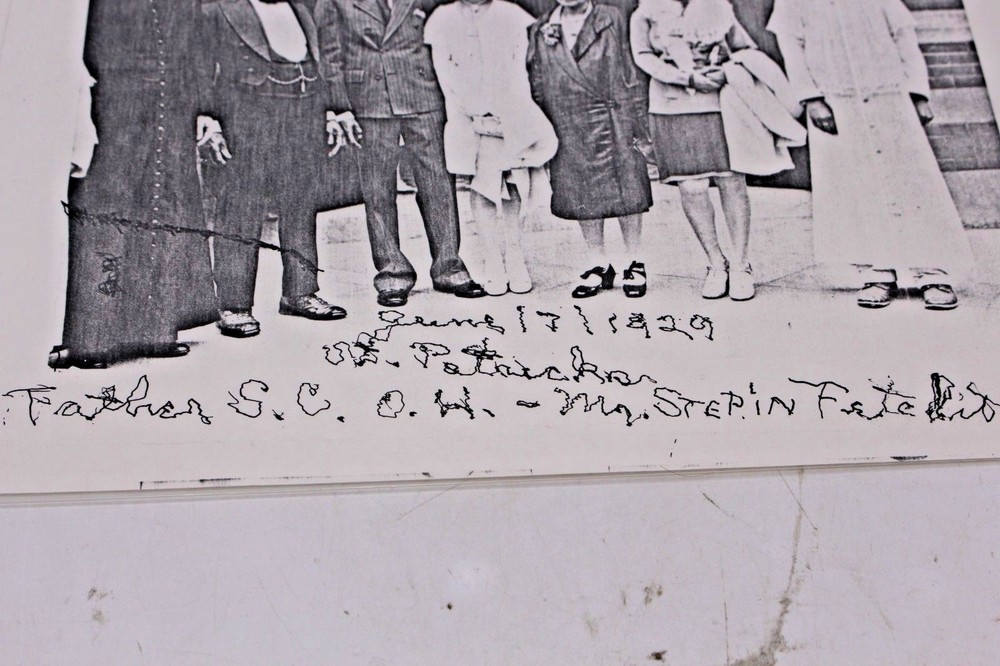 June 17 1929
St. Patricks
Father S.C. O.H. - Mr. STEPIN Fetchit